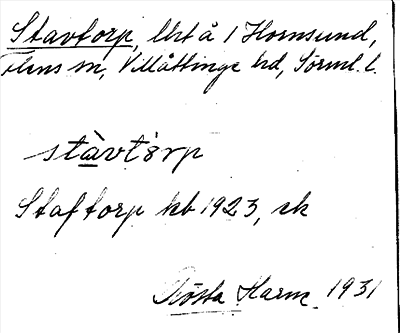 Stavtorp, lht å 1 Hornsund,
Flens sn, Villåttinge hd, Sörml. l.
stàvtòrp
Staftorp kb 1923, sk
Gösta Harm. 1931